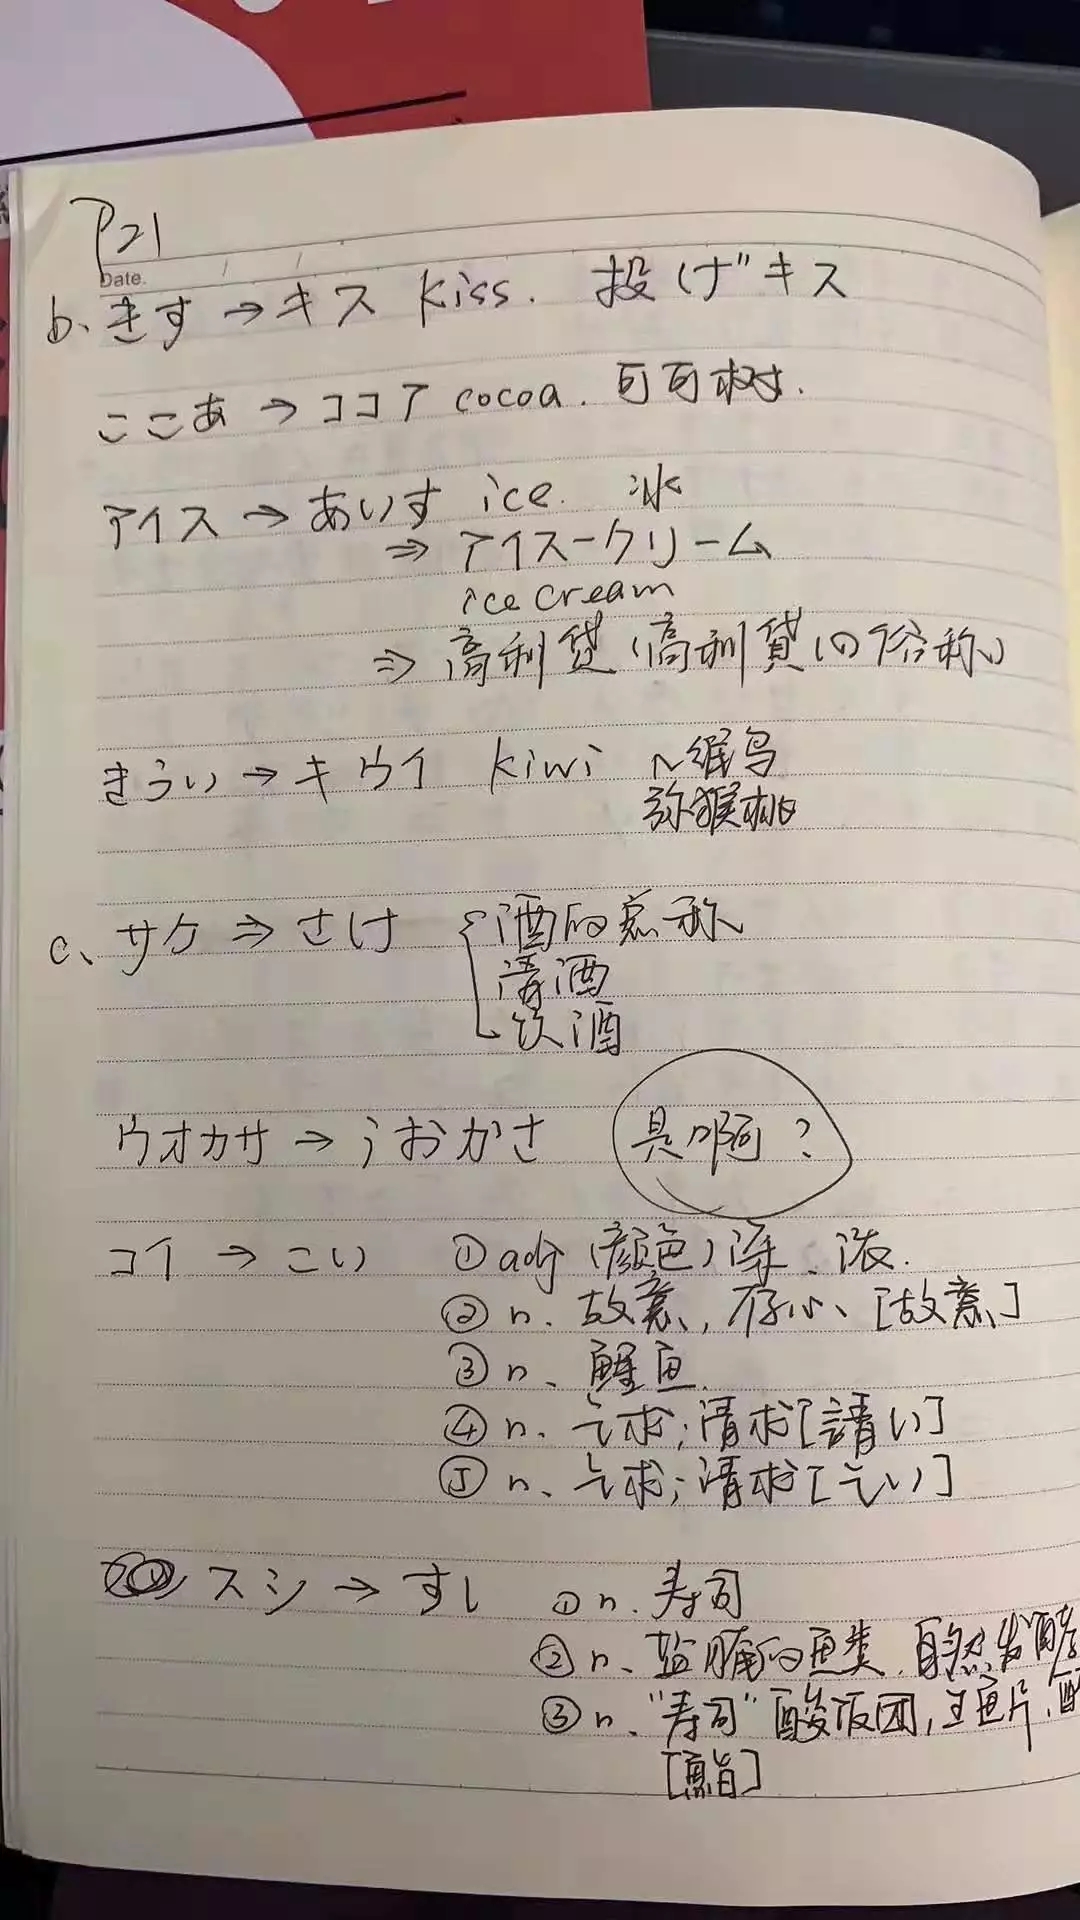 P21
Date.
b、きす → キス kiss. 投げ"キス
ここあ → ココア cocoa. 可可树.
アイス → あいす ice. 冰
⇒ アイスークリーム
ice cream
⇒ 高利貸(高利貸の俗称)
きうい → キウイ kiwi
弥猴桃
c、サケ ⇒ さけ 酒的总称
清酒
饮酒
ウオカサ → うおかさ 是啊?
コイ → こい ①adj (颜色)深、浓.
② n. 故意,存心、[故意]
③ n、鲤鱼.
④ n、乞求;请求[請い]
⑤ n、乞求;请求[乞い]
スシ → すし ① n. 寿司
② n、盐腌的鱼类.自然发酵
③ n、"寿司"酸饭团,生鱼片.
[鮨]